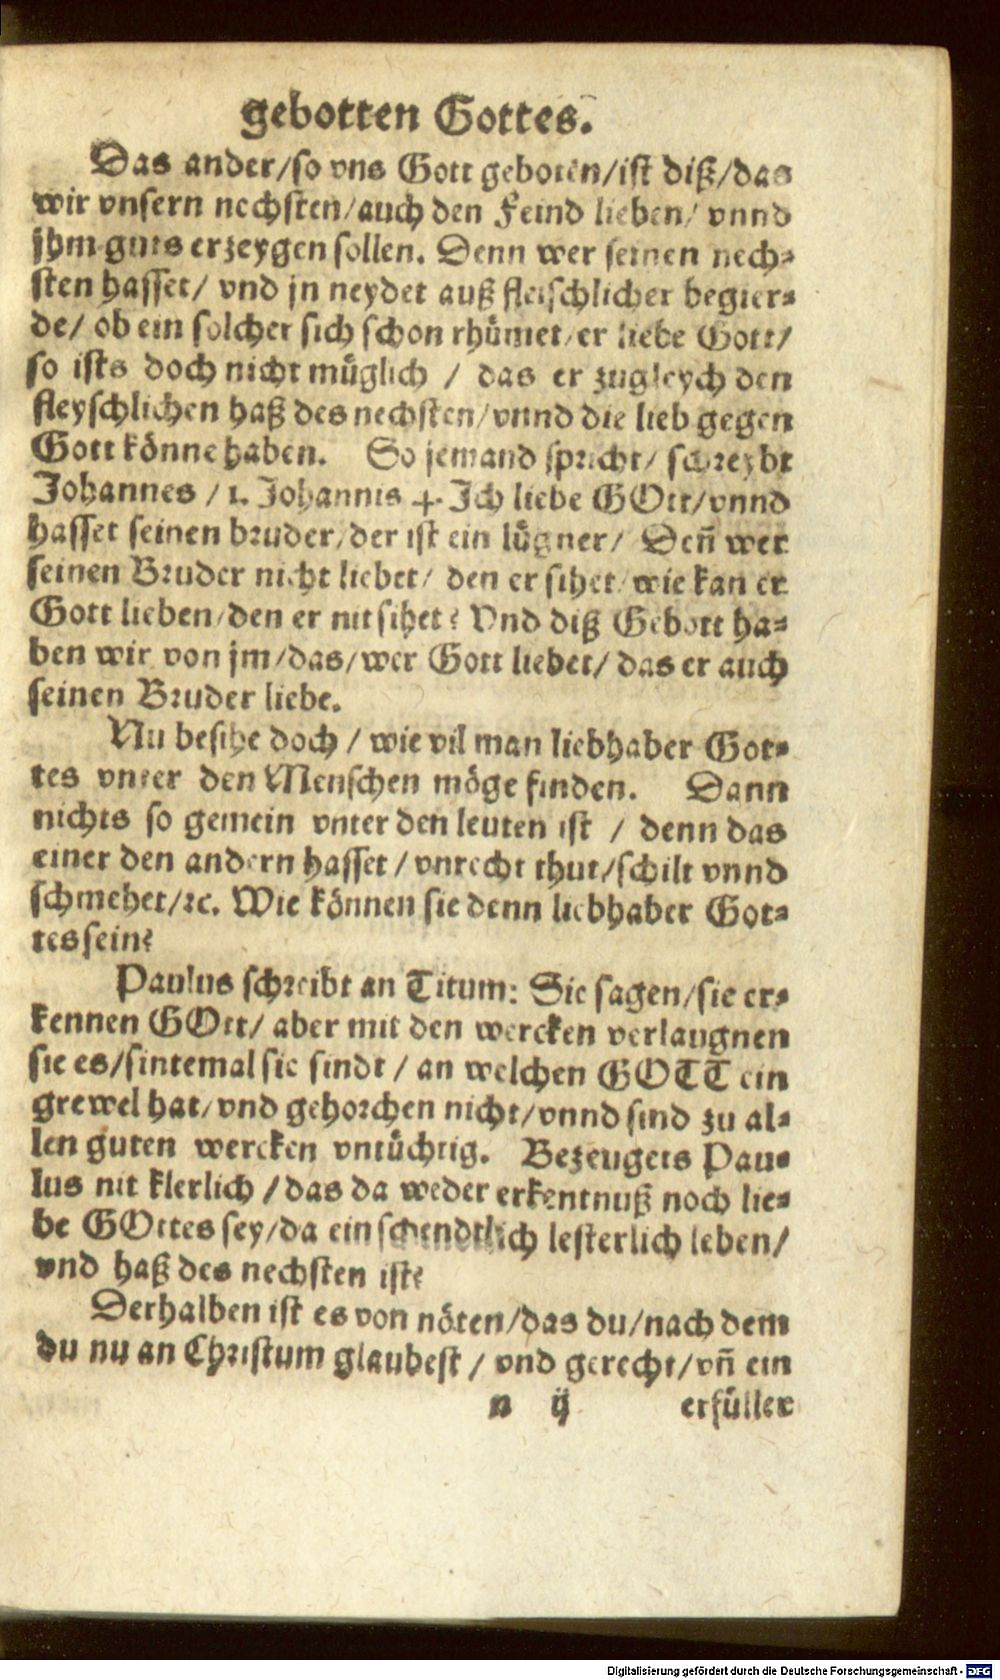 gebotten Gottes.
Das ander/so vns Gott geboten/ist diß/das
wir vnsern nechsten/auch den Feind lieben/ vnnd
jhm guts erzeygen sollen. Denn wer seinen nech-
sten hasset/ vnd jn neydet auß fleischlicher begier-
de/ ob ein solcher sich schon rhümet/er liebe Gott/
so ists doch nicht müglich / das er zugleych den
fleyschlichen haß des nechsten/vnnd die lieb gegen
Gott könne haben. So jemand spricht/ schreybt
Johannes /1. Johannis 4. Ich liebe GOtt/vnnd
hasset seinen bruder/der ist ein lügner/ Deñ wer
seinen Bruder nicht liebet/ den er sihet/wie kan er
Gott lieben/den er nit sihet? Vnd diß Gebott ha-
ben wir von jm/das/wer Gott liebet/ das er auch
seinen Bruder liebe.
Nu besihe doch / wie vil man liebhaber Got-
tes vnter den Menschen möge finden. Dann
nichts so gemein vnter den leuten ist / denn das
einer den andern hasset/vnrecht thut/schilt vnnd
schmehet/ꝛc. Wie können sie denn liebhaber Got-
tes sein?
Paulus schreibt an Titum: Sie sagen/sie er-
kennen GOtt/ aber mit den wercken verlaugnen
sie es/sintemal sie sindt / an welchen GOTT ein
grewel hat/vnd gehorchen nicht/vnnd sind zu al-
len guten wercken vntüchtig. Bezeugets Pau-
lus nit klerlich /das da weder erkentnuß noch lie-
be GOttes sey/da ein schendtlich lesterlich leben/
vnd haß des nechsten ist?
Derhalben ist es von nöten/das du/nach dem
du nu an Christum glaubest / vnd gerecht/vñ ein
n ij erfüller
Digitalisierung gefördert durch die Deutsche Forschungsgemeinschaft - DFG